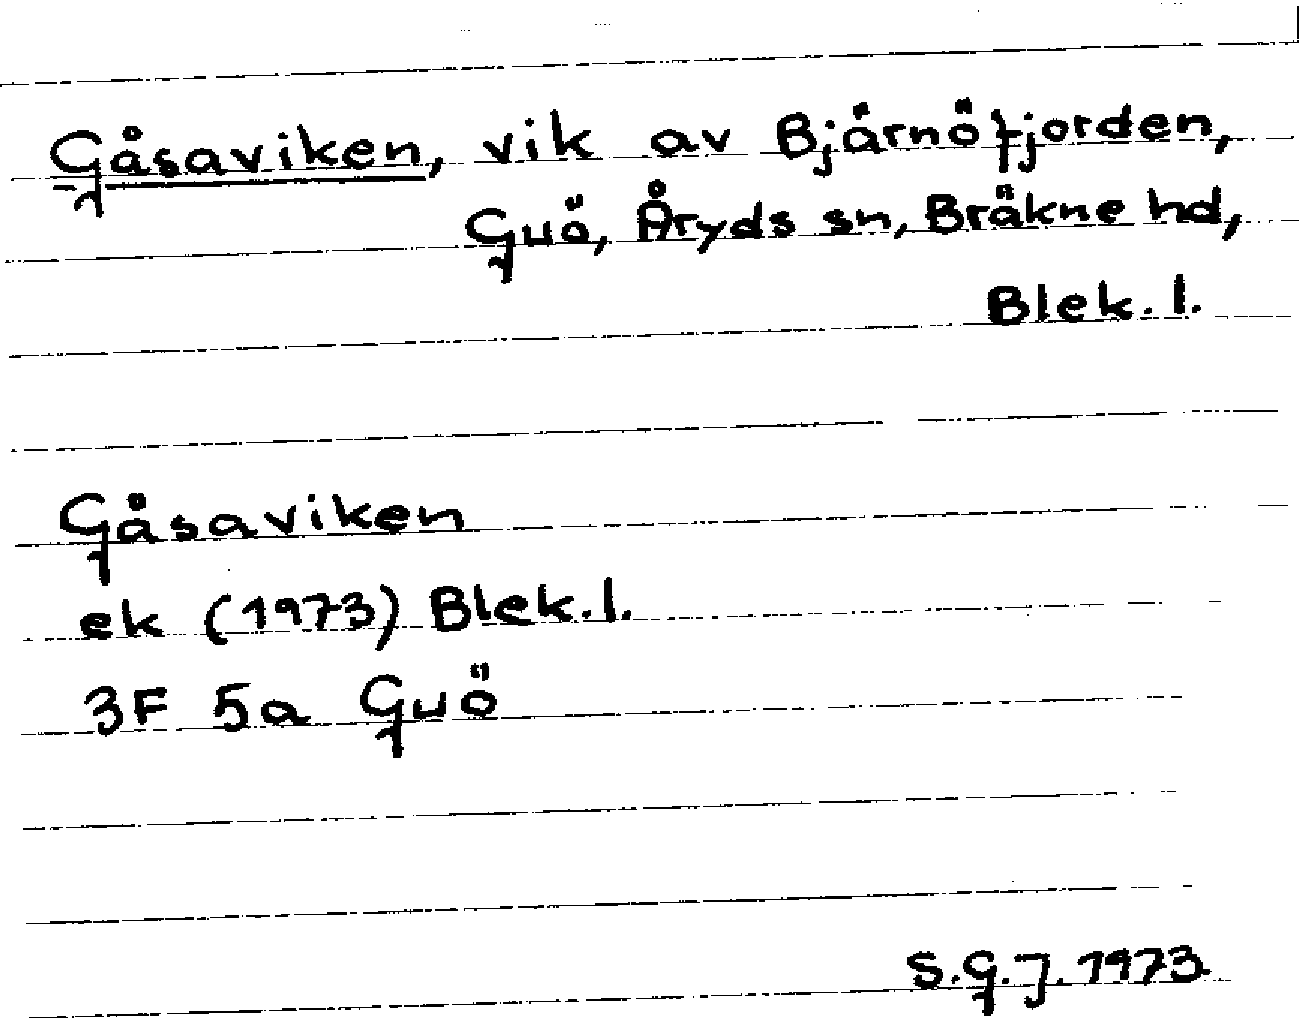 Gåsaviken, vik av Bjärnöfjorden,
Guö, Åryds sn, Bräkne hd,
Blek. l.
Gåsaviken
ek (1973) Blek. l.
3F 5a Guö
S.G.J. 1973